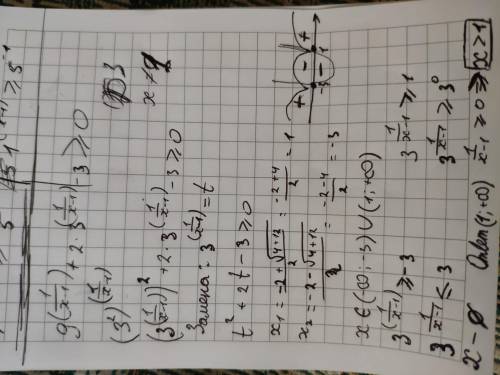 9^(1/(x-1)) + 2·3^(1/(x-1)) - 3 ≥ 0
(3²)^(1/(x-1))
(3^(1/(x-1)))² + 2·3^(1/(x-1)) - 3 ≥ 0
x ≠ 1
Замена: 3^(1/(x-1)) = t
t² + 2t - 3 ≥ 0
x₁ = (-2+√(4+12))/2 = (-2+4)/2 = 1
x₂ = (-2-√(4+12))/2 = (-2-4)/2 = -3
+ - +
-3 1
x ∈ (∞; -3) ∪ (1; +∞)
3^(1/(x-1)) ≥ -3 3^(1/(x-1)) ≥ 1
3^(1/(x-1)) ≤ 3 3^(1/(x-1)) ≥ 3⁰
x - ø Ответ (1; +∞) 1/(x-1) ≥ 0 ⇒ x > 1